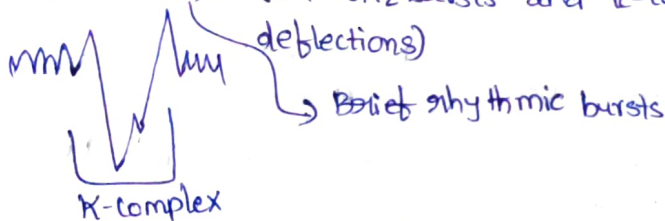 bursts and
deflections)
Brief rhythmic bursts
K-complex